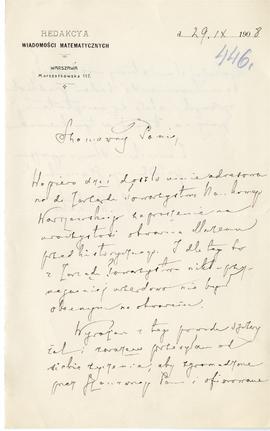 REDAKCYA
WIADOMOŚCI MATEMATYCZNYCH
WARSZAWA
Marszałkowska 117.
d 29. IX 1908
446.
Szanowny Panie,
Dopiero dziś doszło mnie adresowane
do Zarządu Towarzystwa Naukowego
Warszawskiego zaproszenie na
uroczystość otwarcia Muzeum
przedhistorycznego. I dla tego
z Zarządu Towarzystwa nikt
nie był
obecnym na otwarciu.
Wyrażam z tego powodu szczery
żal i zarazem przesyłam od
siebie życzenia, aby zgromadzone
przez Szanownego Pana i ofiarowane